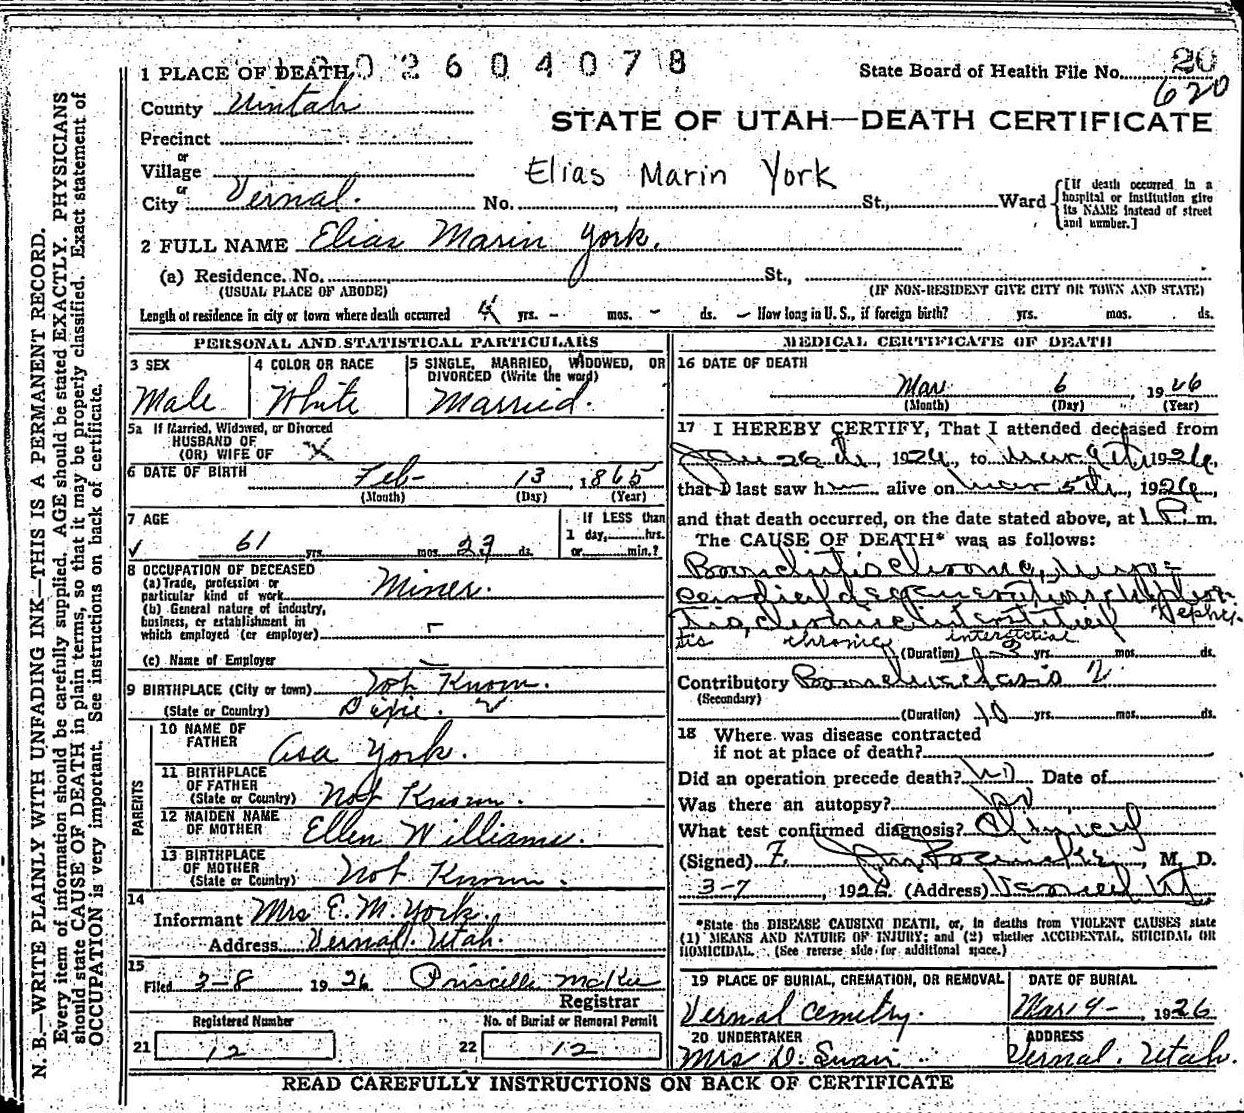 1 PLACE OF DEATH
1 9 0 2 6 0 4 0 7 8
State Board of Health File No. 20
620
County Uintah
STATE OF UTAH—DEATH CERTIFICATE
Precinct
or
Village
Elias Marin York
or
City Vernal. No. , St., Ward
[If death occurred in a hospital or institution give its NAME instead of street and number.]
2 FULL NAME Elias Marin York.
(a) Residence. No. St.,
(USUAL PLACE OF ABODE) (IF NON-RESIDENT GIVE CITY OR TOWN AND STATE)
Length of residence in city or town where death occurred yrs. - mos. - ds. - How long in U. S., if foreign birth? yrs. mos. ds.
PERSONAL AND STATISTICAL PARTICULARS
3 SEX
Male
4 COLOR OR RACE
White
5 SINGLE, MARRIED, WIDOWED, OR
DIVORCED (Write the word)
Married.
5a If Married, Widowed, or Divorced
HUSBAND OF
(OR) WIFE OF X
6 DATE OF BIRTH Feb- 13, 1865
(Month) (Day) (Year)
7 AGE
61 yrs. mos. 23 ds.
If LESS than
1 day, hrs.
or min.?
8 OCCUPATION OF DECEASED
(a) Trade, profession or
particular kind of work Miner.
(b) General nature of industry,
business, or establishment in
which employed (or employer)
(c) Name of Employer —
9 BIRTHPLACE (City or town) Not Known.
(State or Country) Dixie.
PARENTS
10 NAME OF
FATHER Asa York.
11 BIRTHPLACE
OF FATHER
(State or Country) Not Known.
12 MAIDEN NAME
OF MOTHER Ellen Williams.
13 BIRTHPLACE
OF MOTHER
(State or Country) Not Known.
14
Informant Mrs E. M. York.
Address Vernal. Utah.
15
Filed 3-8 1926 Priscilla McKee
Registrar
Registered Number
21 12
No. of Burial or Removal Permit
22 12
MEDICAL CERTIFICATE OF DEATH
16 DATE OF DEATH
Mar 6 1926
(Month) (Day) (Year)
17 I HEREBY CERTIFY, That I attended deceased from
Jan 26th, 1926, to Mar 1926,
that I last saw h alive on Mar 5th, 1926,
and that death occurred, on the date stated above, at 1 P. m.
The CAUSE OF DEATH* was as follows:
Bronchitis chronic,
degeneration,
chronic interstitial Nephri-
tis chronic interstitial
(Duration) 3 yrs. mos. ds.
Contributory
(Secondary)
(Duration) 10 yrs. mos. ds.
18 Where was disease contracted
if not at place of death?
Did an operation precede death? No Date of
Was there an autopsy? No
What test confirmed diagnosis? Clinical
(Signed) , M. D.
3-7, 1926 (Address) Vernal Ut
*State the DISEASE CAUSING DEATH, or, in deaths from VIOLENT CAUSES state
(1) MEANS AND NATURE OF INJURY; and (2) whether ACCIDENTAL, SUICIDAL OR
HOMICIDAL. (See reverse side for additional space.)
19 PLACE OF BURIAL, CREMATION, OR REMOVAL
Vernal Cemetry.
DATE OF BURIAL
Mar 9-, 1926
20 UNDERTAKER
Mrs D. Swain
ADDRESS
Vernal. Utah.
READ CAREFULLY INSTRUCTIONS ON BACK OF CERTIFICATE
N. B.—WRITE PLAINLY WITH UNFADING INK—THIS IS A PERMANENT RECORD.
Every item of information should be carefully supplied. AGE should be stated EXACTLY. PHYSICIANS
should state CAUSE OF DEATH in plain terms, so that it may be properly classified. Exact statement of
OCCUPATION is very important. See instructions on back of certificate.